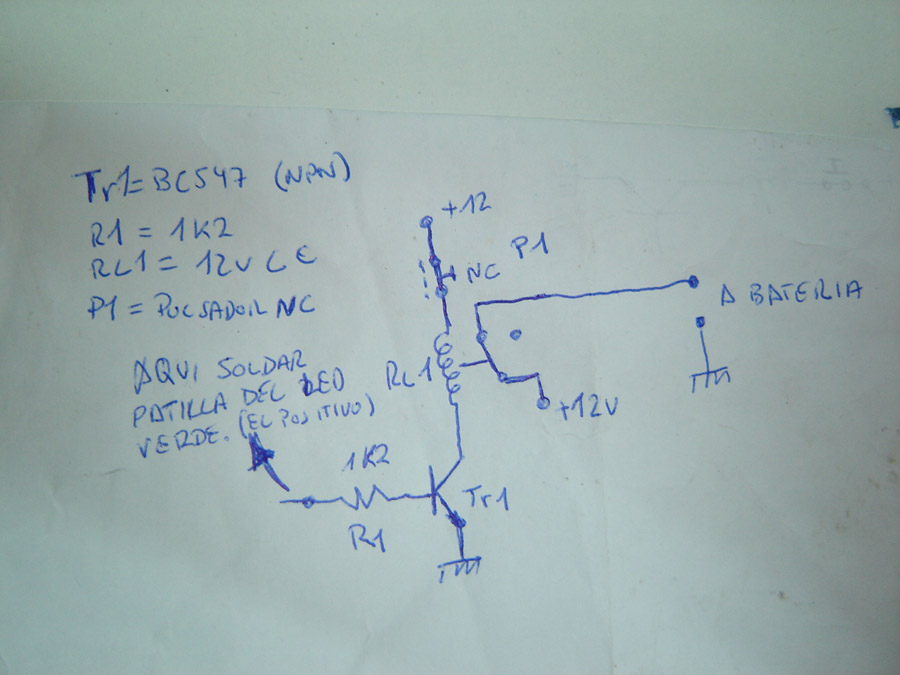 Tr1=BC547 (NPN)
R1 = 1K2
RL1 = 12V C C
P1 = PULSADOR NC
AQUI SOLDAR
PATILLA DEL LED
VERDE. (EL POSITIVO)
+12
P1
NC
A BATERIA
RL1
+12V
1K2
Tr1
R1